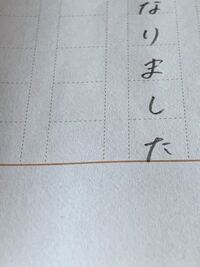 なりました